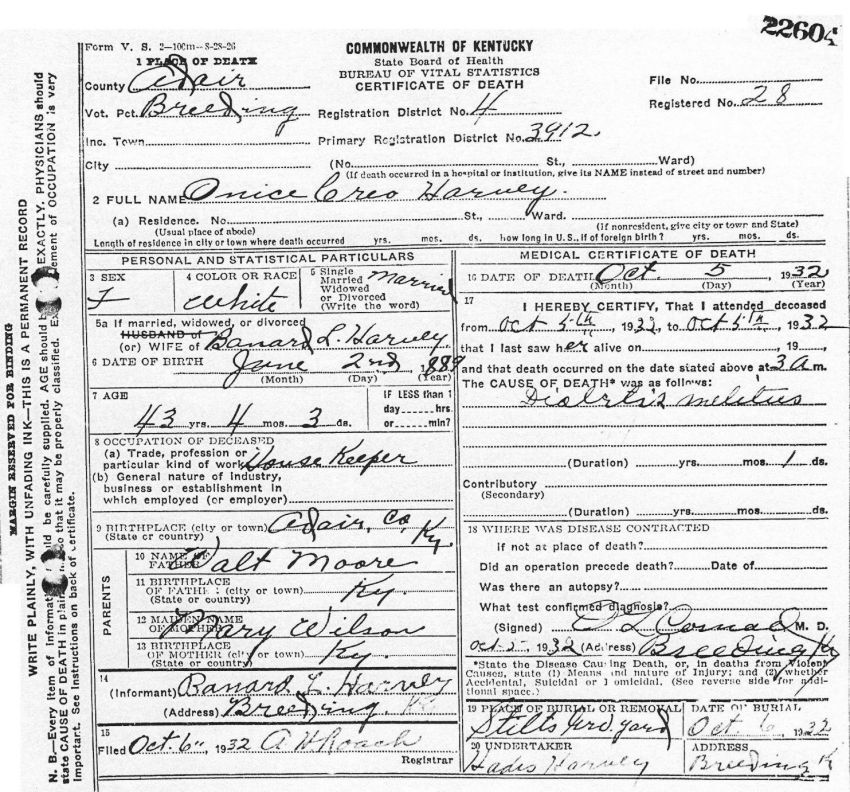 22604
Form V. S. 2—100m—8-28-26
COMMONWEALTH OF KENTUCKY
State Board of Health
BUREAU OF VITAL STATISTICS
CERTIFICATE OF DEATH
1 PLACE OF DEATH
County Adair
Vot. Pct. Breeding
Inc. Town
City
Registration District No. 4
Primary Registration District No. 3912
File No.
Registered No. 28
(No. St., Ward)
(If death occurred in a hospital or institution, give its NAME instead of street and number)
2 FULL NAME Onice Creo Harvey.
(a) Residence. No. St., Ward.
(Usual place of abode) (If nonresident, give city or town and State)
Length of residence in city or town where death occurred yrs. mos. ds. how long in U.S., if of foreign birth? yrs. mos. ds.
PERSONAL AND STATISTICAL PARTICULARS
3 SEX F
4 COLOR OR RACE White
5 Single
Married
Widowed
or Divorced
(Write the word)
Married
5a If married, widowed, or divorced
HUSBAND of
(or) WIFE of Banard L. Harvey
6 DATE OF BIRTH June 2nd, 1889
(Month) (Day) (Year)
7 AGE
43 yrs. 4 mos. 3 ds.
IF LESS than 1
day ...... hrs.
or ...... min?
8 OCCUPATION OF DECEASED
(a) Trade, profession or
particular kind of work House Keeper
(b) General nature of industry,
business or establishment in
which employed (or employer)
9 BIRTHPLACE (city or town) Adair, Co,
(State or country) Ky.
PARENTS
10 NAME OF
FATHER Walt Moore
11 BIRTHPLACE
OF FATHER (city or town) Ky.
(State or country)
12 MAIDEN NAME
OF MOTHER Mary Wilson
13 BIRTHPLACE
OF MOTHER (city or town) Ky.
(State or country)
14
(Informant) Banard L. Harvey
(Address) Breeding. Ky
15
Filed Oct. 6, 1932 A W Roach
Registrar
MEDICAL CERTIFICATE OF DEATH
16 DATE OF DEATH Oct. 5, 1932
(Month) (Day) (Year)
17 I HEREBY CERTIFY, That I attended deceased
from Oct 5th, 1932, to Oct 5th, 1932
that I last saw her alive on, 19
and that death occurred on the date stated above at 3 A m.
The CAUSE OF DEATH* was as follows:
Diabetis melitius
(Duration) yrs. mos. 1 ds.
Contributory
(Secondary)
(Duration) yrs. mos. ds.
18 WHERE WAS DISEASE CONTRACTED
if not at place of death?
Did an operation precede death? Date of
Was there an autopsy?
What test confirmed diagnosis?
(Signed) M. D.
Oct 5, 1932 (Address) Breeding Ky
*State the Disease Causing Death, or, in deaths from Violent
Causes, state (1) Means and nature of Injury; and (2) whether
Accidental, Suicidal or Homicidal. (See reverse side for addi-
tional space.)
19 PLACE OF BURIAL OR REMOVAL
Stilts Grd. yard
DATE OF BURIAL
Oct. 6, 1932
20 UNDERTAKER
Hades Harvey
ADDRESS
Breeding K
MARGIN RESERVED FOR BINDING
WRITE PLAINLY, WITH UNFADING INK—THIS IS A PERMANENT RECORD
N. B.—Every item of information should be carefully supplied. AGE should be EXACTLY. PHYSICIANS should
state CAUSE OF DEATH in plain so that it may be properly classified. statement of OCCUPATION is very
important. See instructions on back of certificate.